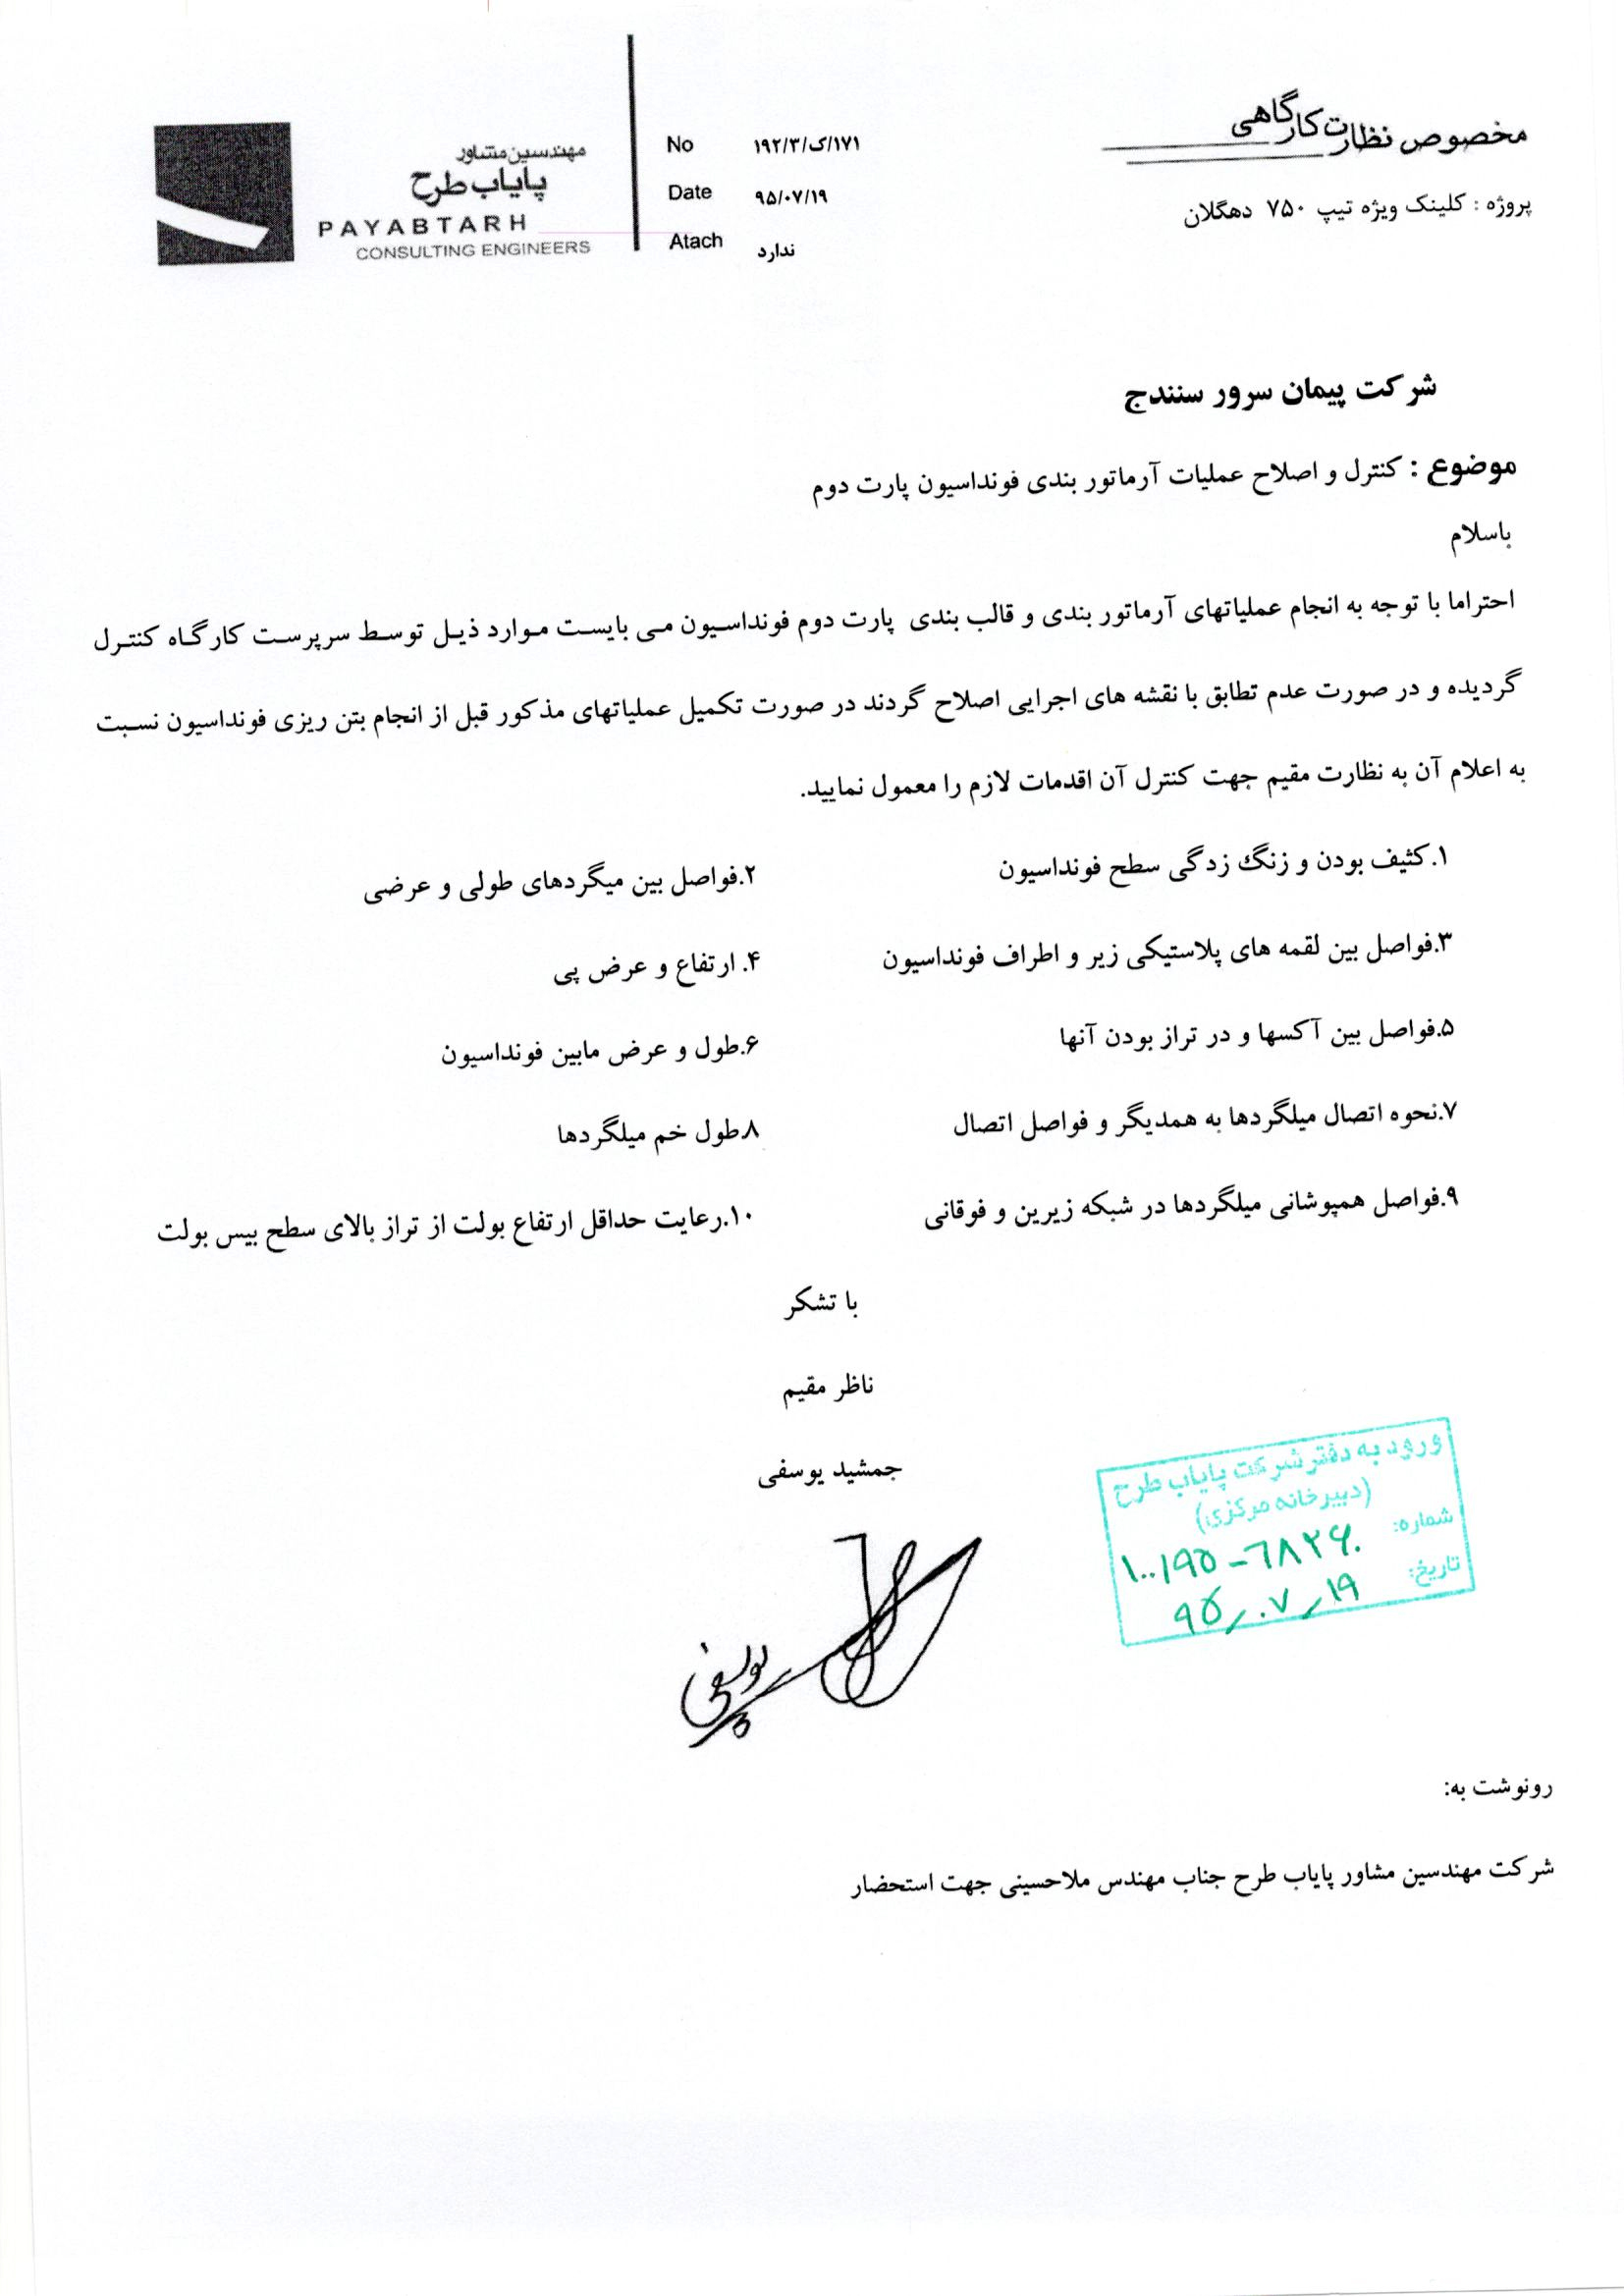 مخصوص نظارت کارگاهی
پروژه : کلینک ویژه تیپ ۷۵۰ دهگلان
No ۱۷۱/ک/۱۹۲/۳
Date ۹۵/۰۷/۱۹
Atach ندارد
مهندسین مشاور
پایاب طرح
PAYABTARH
CONSULTING ENGINEERS
شرکت پیمان سرور سنندج
موضوع : کنترل و اصلاح عملیات آرماتور بندی فونداسیون پارت دوم
باسلام
احتراما با توجه به انجام عملیاتهای آرماتور بندی و قالب بندی پارت دوم فونداسیون می بایست موارد ذیل توسط سرپرست کارگاه کنترل
گردیده و در صورت عدم تطابق با نقشه های اجرایی اصلاح گردند در صورت تکمیل عملیاتهای مذکور قبل از انجام بتن ریزی فونداسیون نسبت
به اعلام آن به نظارت مقیم جهت کنترل آن اقدمات لازم را معمول نمایید.
۱.کثیف بودن و زنگ زدگی سطح فونداسیون ۲.فواصل بین میگردهای طولی و عرضی
۳.فواصل بین لقمه های پلاستیکی زیر و اطراف فونداسیون ۴. ارتفاع و عرض پی
۵.فواصل بین آکسها و در تراز بودن آنها ۶.طول و عرض مابین فونداسیون
۷.نحوه اتصال میلگردها به همدیگر و فواصل اتصال ۸.طول خم میلگردها
۹.فواصل همپوشانی میلگردها در شبکه زیرین و فوقانی ۱۰.رعایت حداقل ارتفاع بولت از تراز بالای سطح بیس بولت
با تشکر
ناظر مقیم
جمشید یوسفی
یوسفی
ورود به دفتر شرکت پایاب طرح
(دبیرخانه مرکزی)
شماره: ۱۰۰/۹۵-۶۸۲۶۰
تاریخ: ۹۵/۰۷/۱۹
رونوشت به:
شرکت مهندسین مشاور پایاب طرح جناب مهندس ملاحسینی جهت استحضار